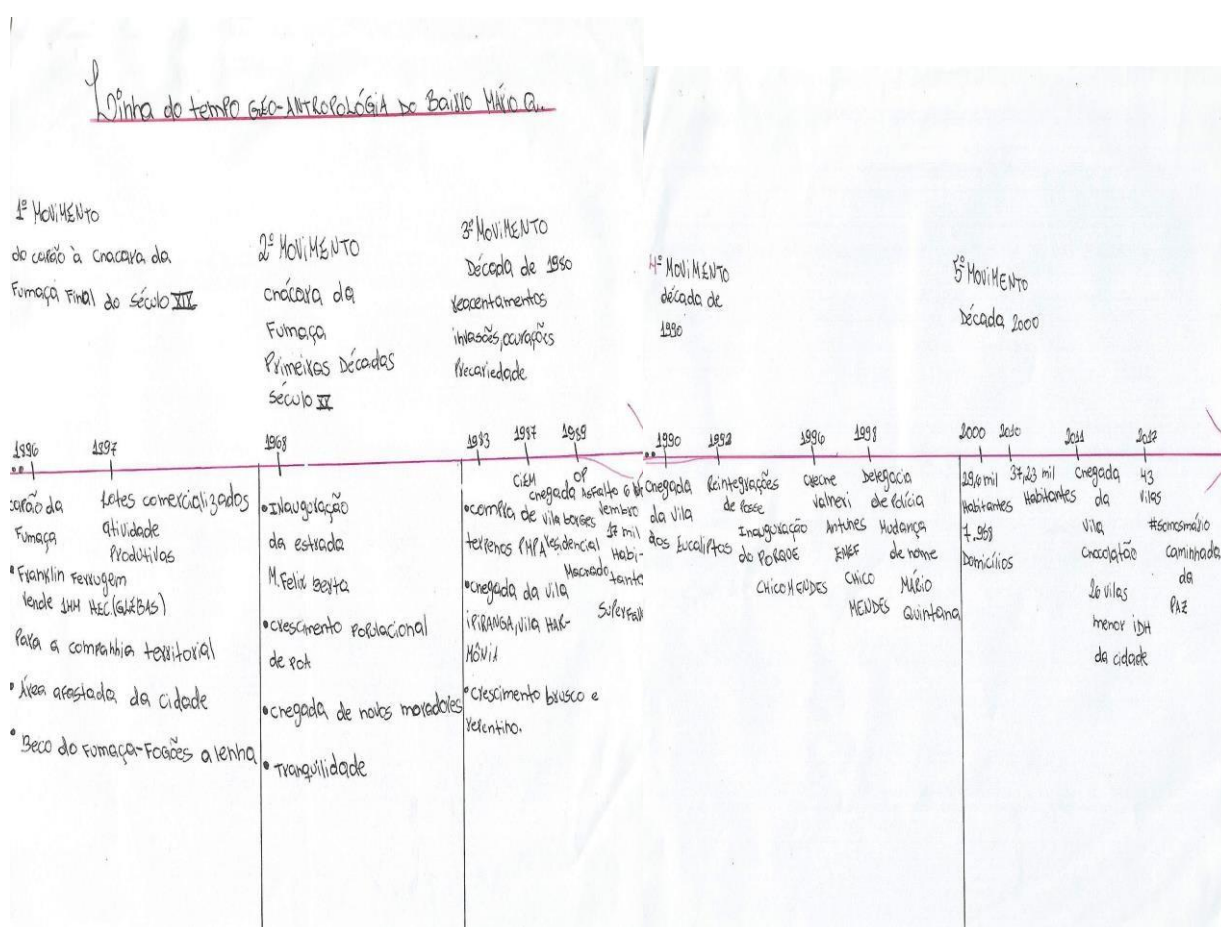 Linha do tempo GÉO-ANTROPOLÓGIA DO Bairro MÁRIO Q.
1º MOViMENTO
do carão à chacara da
Fumaça Final do Século XIX
2º MOViMENTO
chácara da
Fumaça
Primeiras Décadas
século XX
3º MOViMENTO
Década de 1980
reacentamentos
invasões, ocurações
Precariedade
4º MOViMENTO
década de
1990
5º MOViMENTO
Década 2000
1896
carão da
Fumaça
1897
Lotes comercializados
atividade
Produtivas
• Franklin Ferrugem
Vende HEC.(GLÉBAS)
Para a companhia territorial
• Área afastada da cidade
• Beco do Fumaça-Fogões a lenha
1968
• INauguração
da estrada
M.Felix berta
• crescimento Populacional
de POA
• chegada de novos moradores
• Tranquilidade
1983
• compra de
terrenos PMPA
• chegada da vila
iPiRANGA, Vila HAR-
MÔNiA
• Crescimento brusco e
repentino.
1987
CiEM
chegada
vila borges
residencial
Machado
1989
OP
Asfalto 6
vembro
17 mil
Habi-
tante
1990
chegada
da vila
dos Eucaliptos
1992
Reintegrações
de Posse
Inauguração
do PORQUE
CHICO MENDES
1996
creche
valneri
Antunes
EMEF
CHICO
MENDES
1998
Delegacia
de Polícia
Mudança
de nome
MÁRIO
Quintana
2000
29,6 mil
Habitantes
7.968
Domicílios
2010
37,23 mil
Habitantes
2011
chegada
da
vila
chocolatão
26 vilas
menor iDH
da cidade
2012
43
vilas
#somosmário
caminhada
da
PAZ